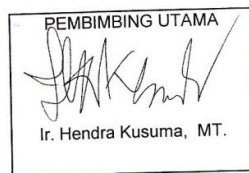 PEMBIMBING UTAMA
Ir. Hendra Kusuma, MT.